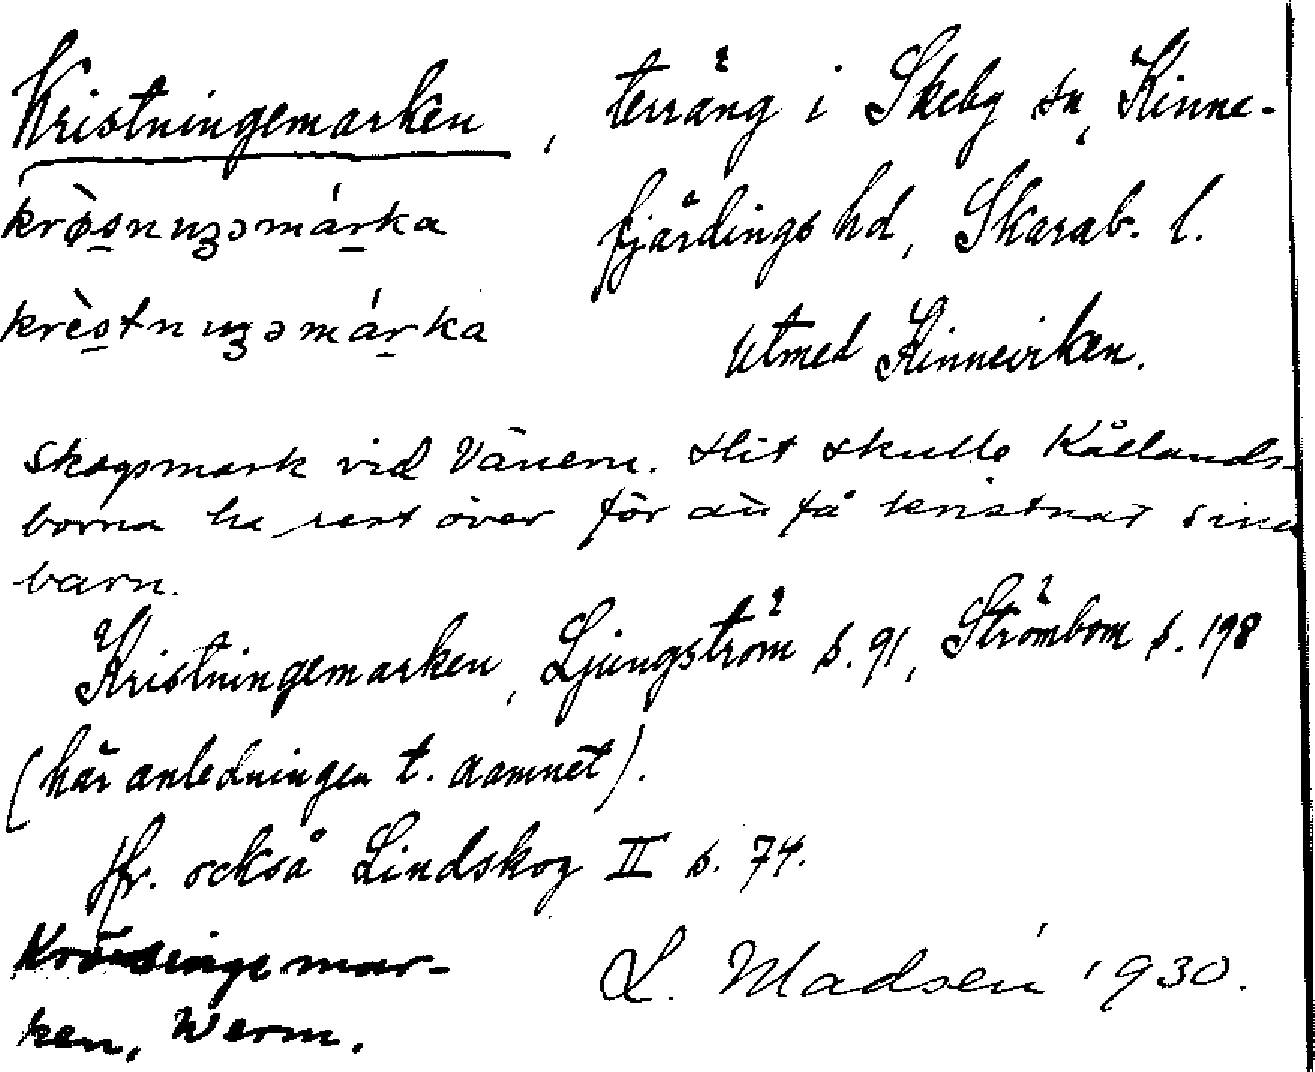 Kristningemarken, terräng i Skeby sn, Kinne-
krø̀snuŋəmárka fjärdings hd, Skarab. l.
krèstnuŋəmárka utmed Kinneviken.
Skogsmark vid Vänern. Hit skulle Kållands-
borna ha rest över för att få kristnat sina
barn.
Kristningemarken, Ljungström s. 91, Strömbom s. 198
(här anledningen t. namnet).
Jfr. också Lindskog II s. 74.
L. Madsén 1930.
ken, Werm.